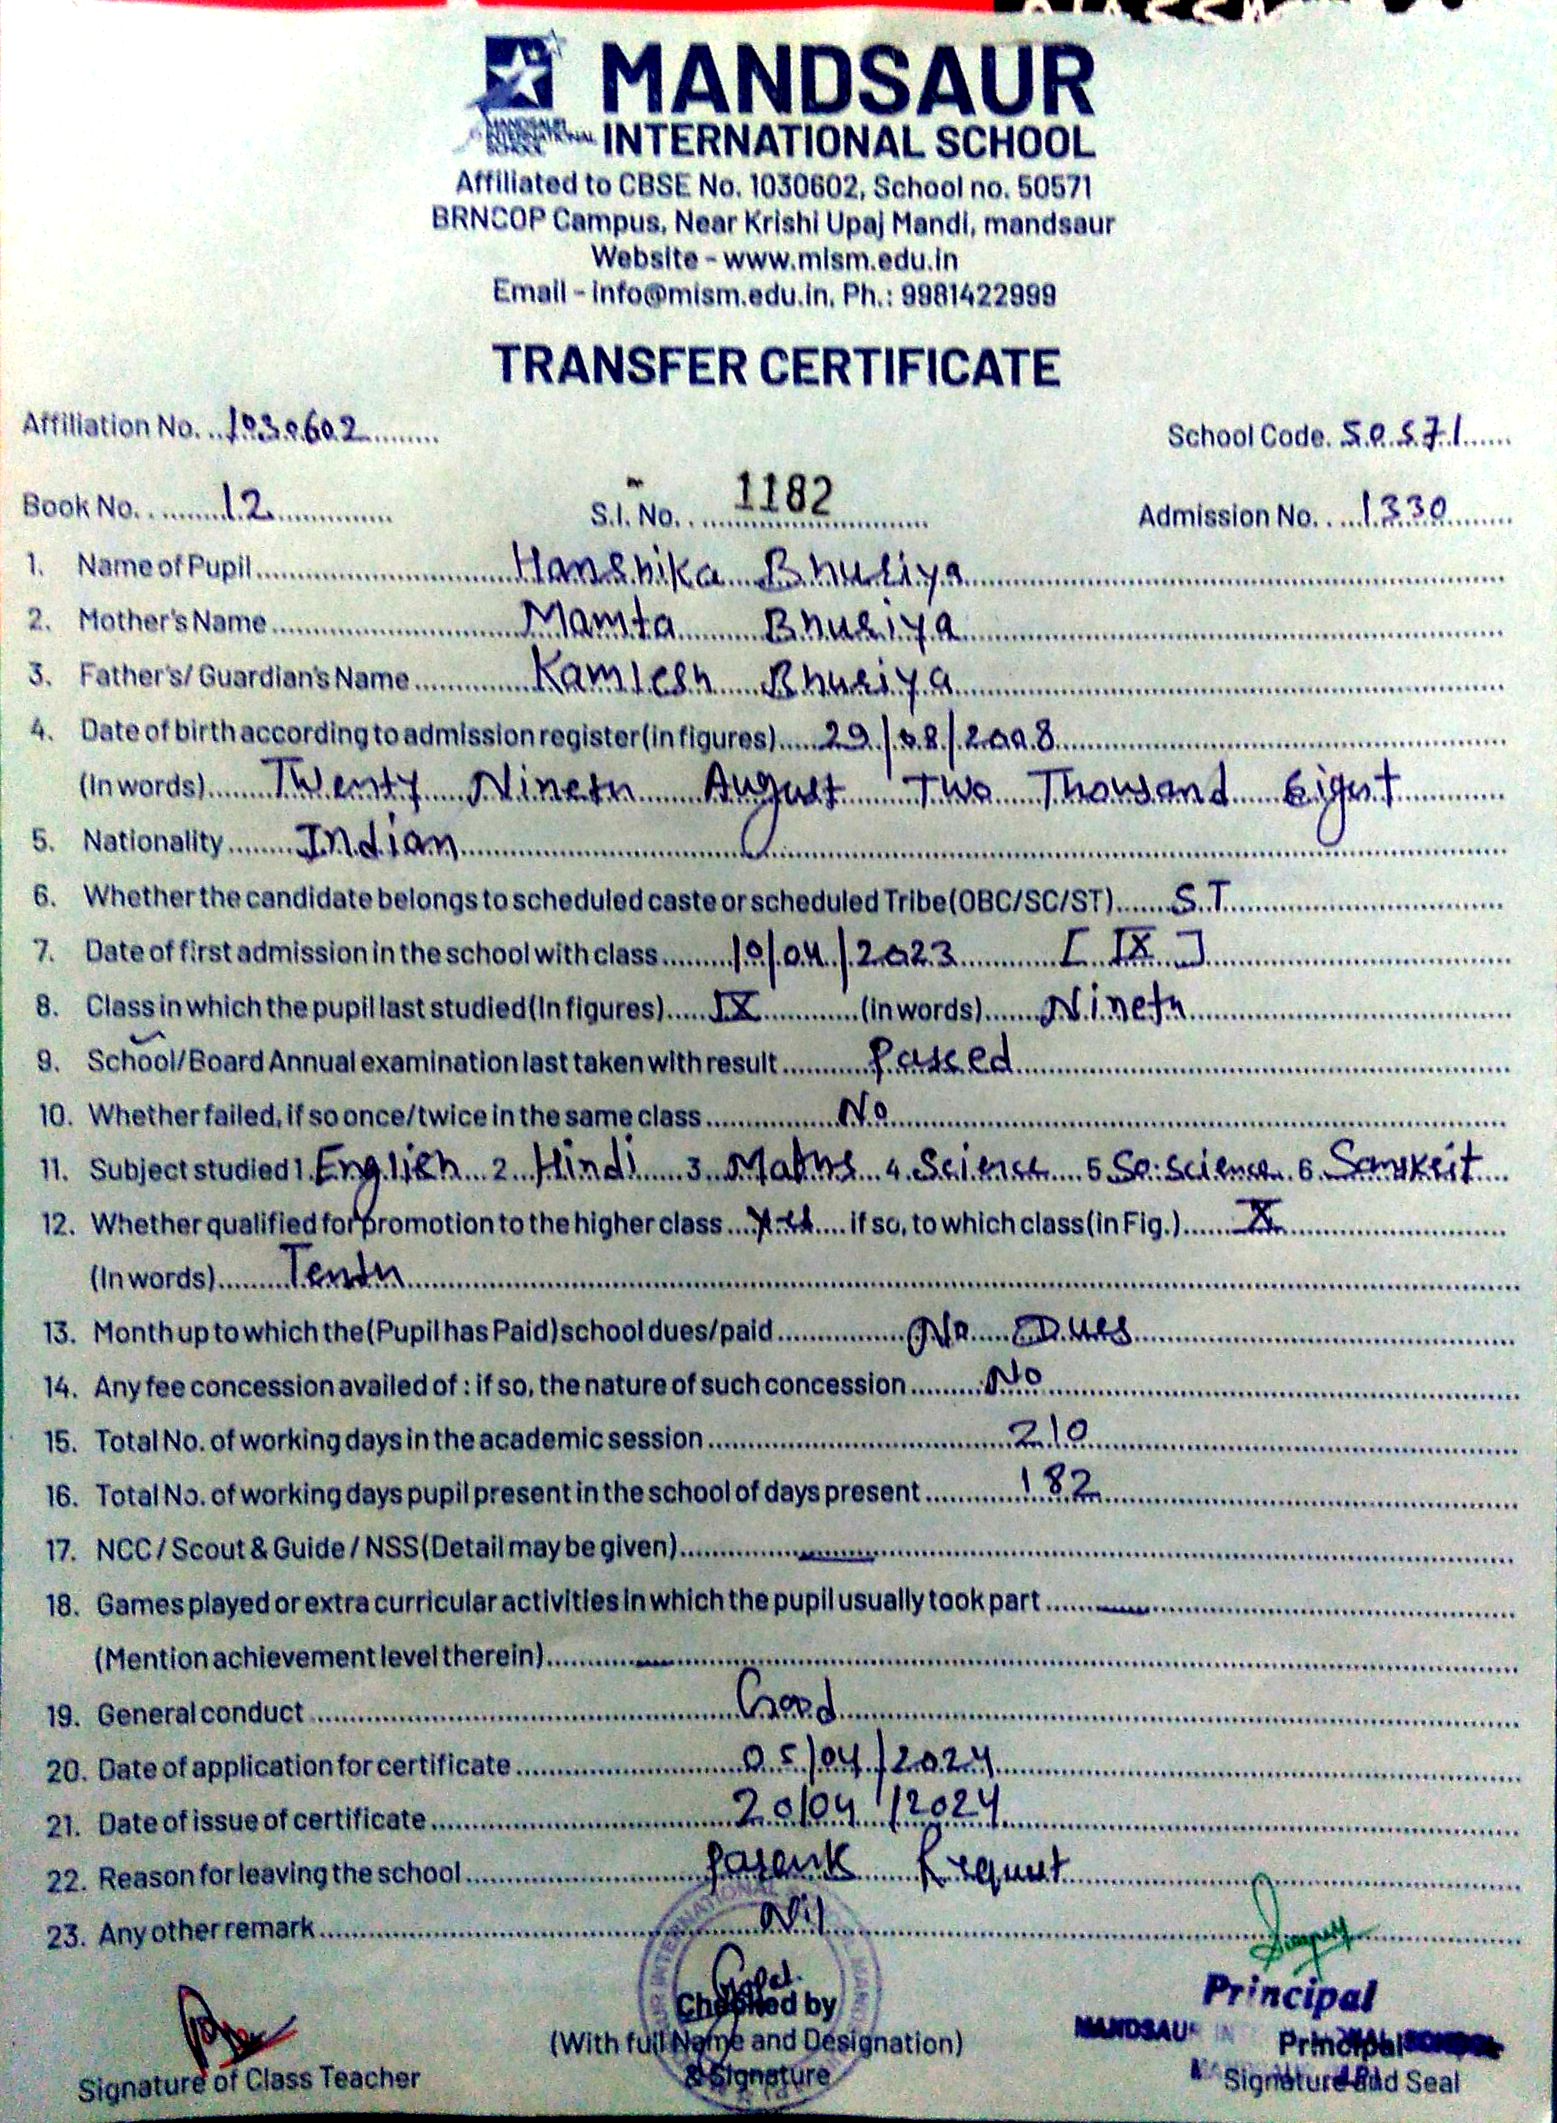 MANDSAUR
INTERNATIONAL SCHOOL
MANDSAUR
INTERNATIONAL
SCHOOL
Affiliated to CBSE No. 1030602, School no. 50571
BRNCOP Campus, Near Krishi Upaj Mandi, mandsaur
Website - www.mism.edu.in
Email - info@mism.edu.in, Ph.: 9981422999
TRANSFER CERTIFICATE
Affiliation No. 1030602 School Code. 50571
Book No. 12 S.I. No. 1182 Admission No. 1330
1. Name of Pupil Hanshika Bhuriya
2. Mother's Name Mamta Bhuriya
3. Father's/ Guardian's Name Kamlesh Bhuriya
4. Date of birth according to admission register (in figures) 29/08/2008
(In words) Twenty Nineth August Two Thousand Eight
5. Nationality Indian
6. Whether the candidate belongs to scheduled caste or scheduled Tribe (OBC/SC/ST) S.T.
7. Date of first admission in the school with class 10/04/2023 [IX]
8. Class in which the pupil last studied (In figures) IX (in words) Nineth
9. School/Board Annual examination last taken with result Passed
10. Whether failed, if so once/twice in the same class No
11. Subject studied 1. English 2. Hindi 3. Maths 4. Science 5. So. science 6. Sanskrit
12. Whether qualified for promotion to the higher class Yes if so, to which class (in Fig.) X
(In words) Tenth
13. Month up to which the (Pupil has Paid) school dues/paid No Dues
14. Any fee concession availed of : if so, the nature of such concession No
15. Total No. of working days in the academic session 210
16. Total No. of working days pupil present in the school of days present 182
17. NCC / Scout & Guide / NSS (Detail may be given)
18. Games played or extra curricular activities in which the pupil usually took part
(Mention achievement level therein)
19. General conduct Good
20. Date of application for certificate 05/04/2024
21. Date of issue of certificate 20/04/2024
22. Reason for leaving the school Parents Request
23. Any other remark Nil
Principal
Checked by
MANDSAUR
(With full Name and Designation) Principal
Signature of Class Teacher & Signature Signature and Seal